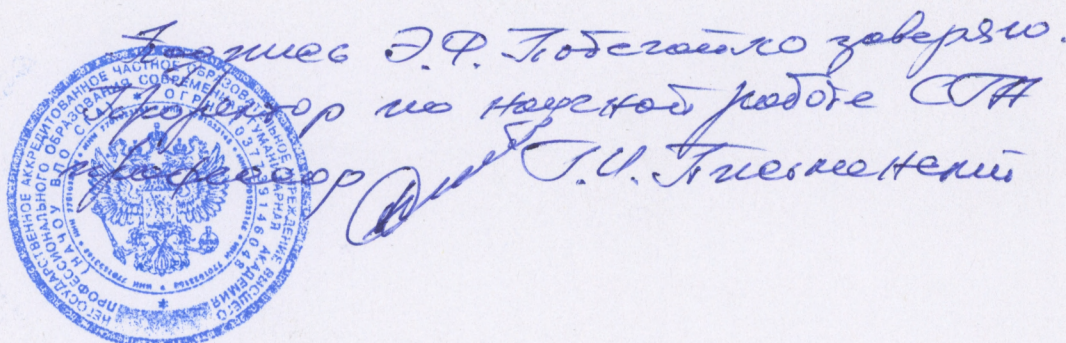 Подпись Э.Ф. Побегайло заверяю.
Проректор по научной работе СГА
профессор Г.И. Письменский
НЕГОСУДАРСТВЕННОЕ АККРЕДИТОВАННОЕ ЧАСТНОЕ ОБРАЗОВАТЕЛЬНОЕ УЧРЕЖДЕНИЕ ВЫСШЕГО
ПРОФЕССИОНАЛЬНОГО ОБРАЗОВАНИЯ СОВРЕМЕННАЯ ГУМАНИТАРНАЯ АКАДЕМИЯ
(НАЧОУ ВПО СГА) ОГРН